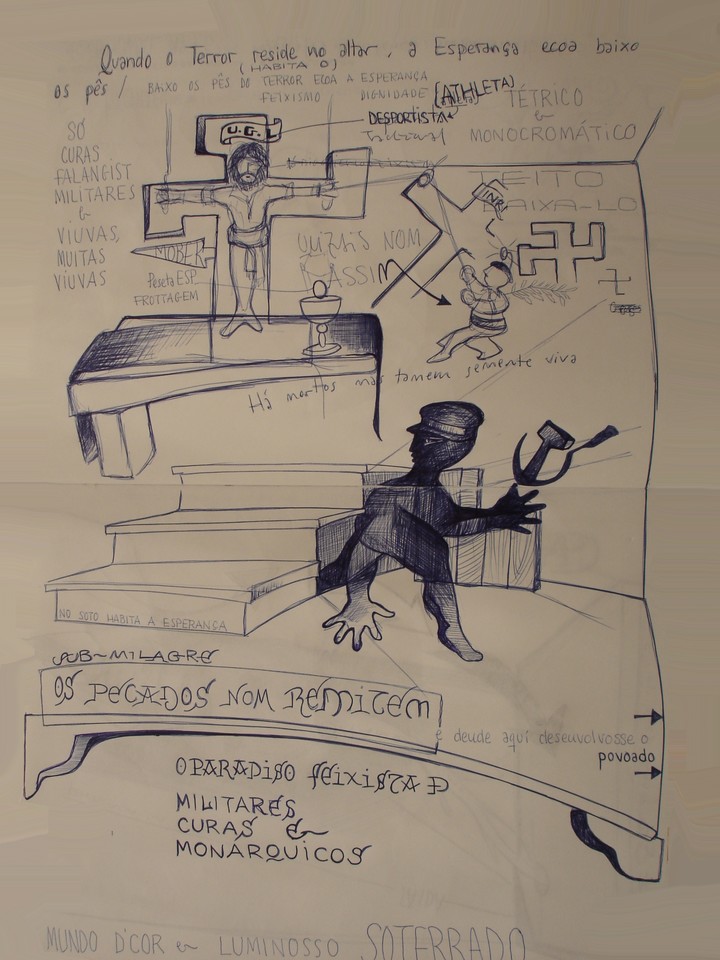 Quando o Terror reside no altar, a Esperança ecoa baixo
(HABITA O)
os pês / BAIXO OS PÉS DO TERROR ECOA A ESPERANÇA
FEIXISMO
DIGNIDADE
(ATHLETA)
DESPORTISTA
TÉTRICO
e
MONOCROMÁTICO
SÓ
CURAS
FALANGIST
MILITARES
&
VIUVAS,
MUITAS
VIUVAS
U.G.
TEITO
BAIXA-LO
INRI
MÖBER
Peseta ESP
FROTTAGEM
QUIZAIS NOM
ASSIM
Há mortos mas tamem semente viva
NO SOTO HABITA A ESPERANÇA
SUB-MILAGRE
OS PECADOS NOM REMITEM
e deude aquí desenvolvosse o
povoado
O PARADISO FEIXISTA D
MILITARES
CURAS &
MONÁRQUICOS
MUNDO D'COR e LUMINOSSO SOTERRADO